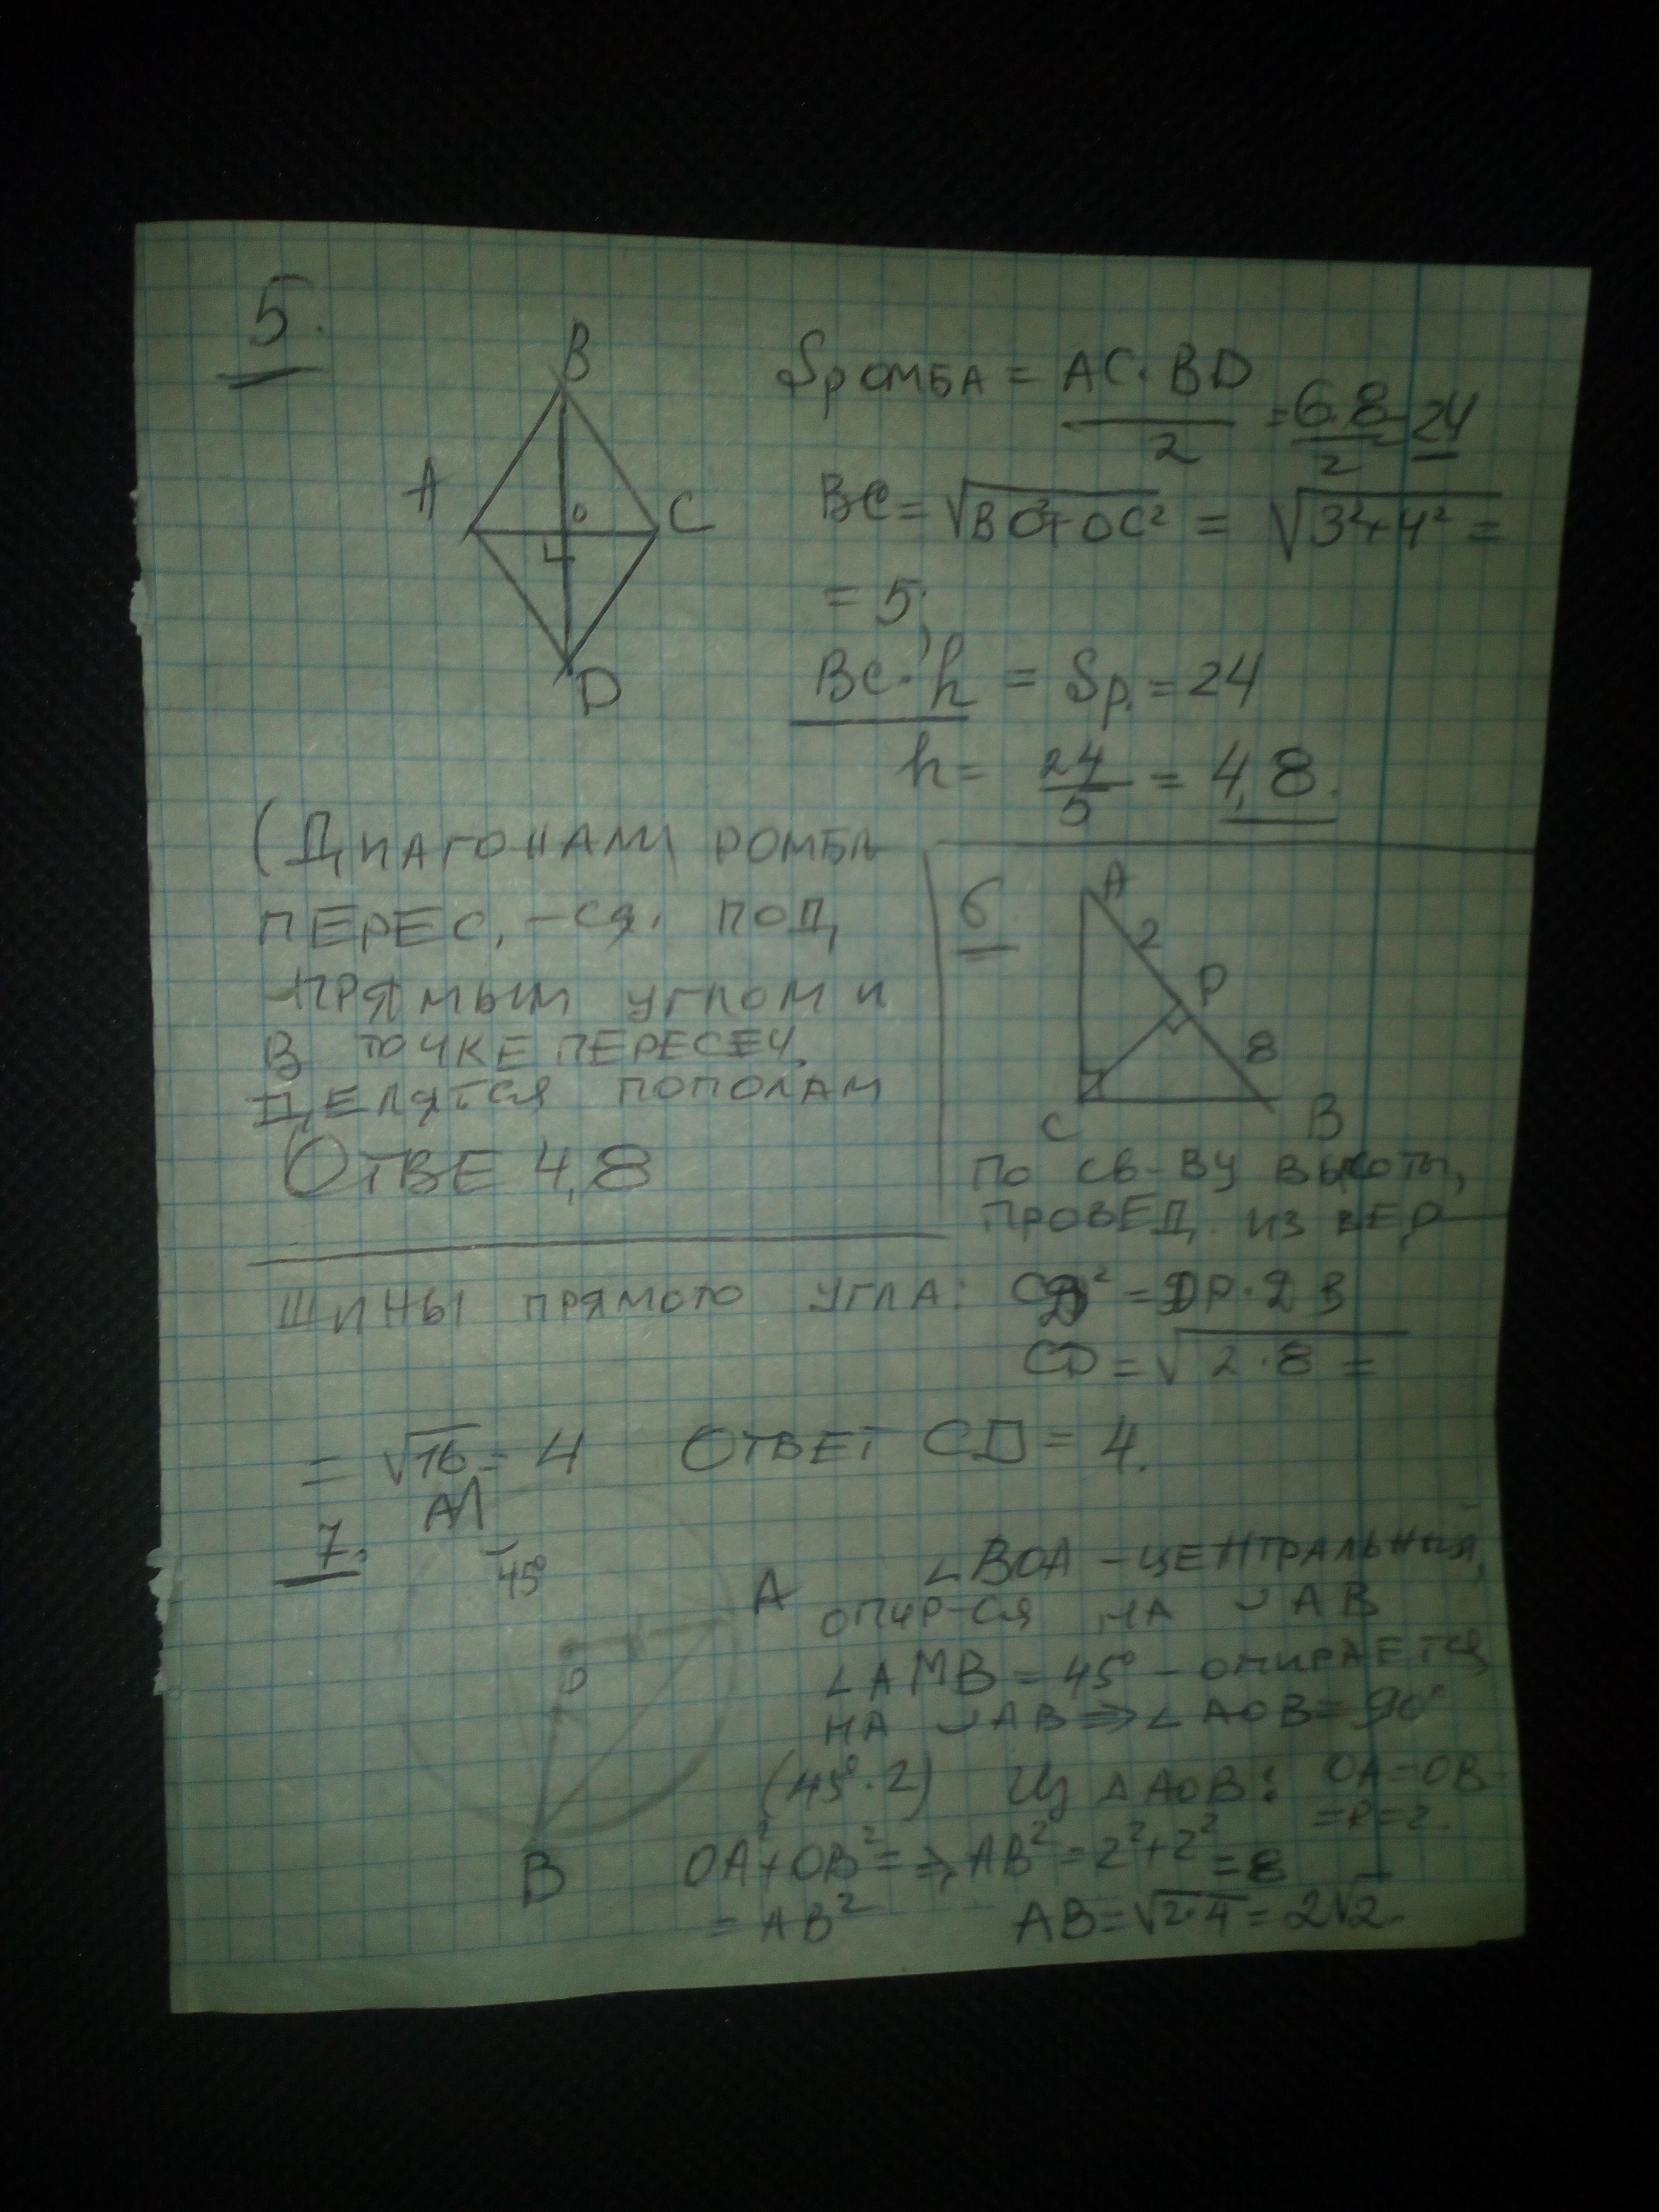 5.
B
A
C
O
4
D
Sромба = AC·BD / 2 = 6·8 / 2 = 24
BC = √BO²+OC² = √3²+4² =
= 5;
BC·h = Sр. = 24
h = 24/5 = 4,8.
(Диагонали ромба
перес.-ся. под
прямым углом и
в точке пересеч.
делятся пополам
Отве 4,8
6.
A
2
P
8
C
B
По св-ву высоты,
провед. из вер-
шины прямого угла:
CD = √2·8 =
= √16 = 4 Ответ CD = 4.
7.
A
45°
A
O
B
∠BOA – центральный,
опир-ся на ◡ AB
∠AMB = 45° – опирается
на ◡AB ⇒ ∠AOB = 90°
(45°·2) Из ΔAOB: OA=OB
=R=2.
OA²+OB² = ⇒ AB² = 2²+2² = 8
= AB² AB = √2·4 = 2√2.